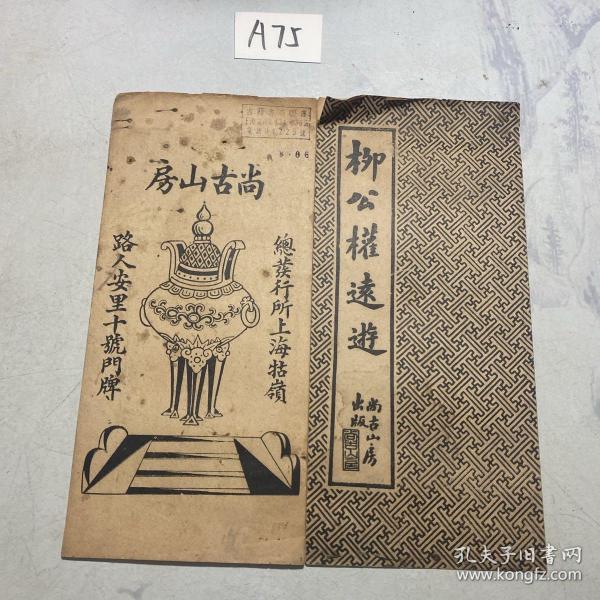 A75
尚古山房
總發行所上海牯嶺
路人安里十號門牌
8.06
柳公權遠遊
尚古山房
出版
孔夫子旧书网
www.kongfz.com